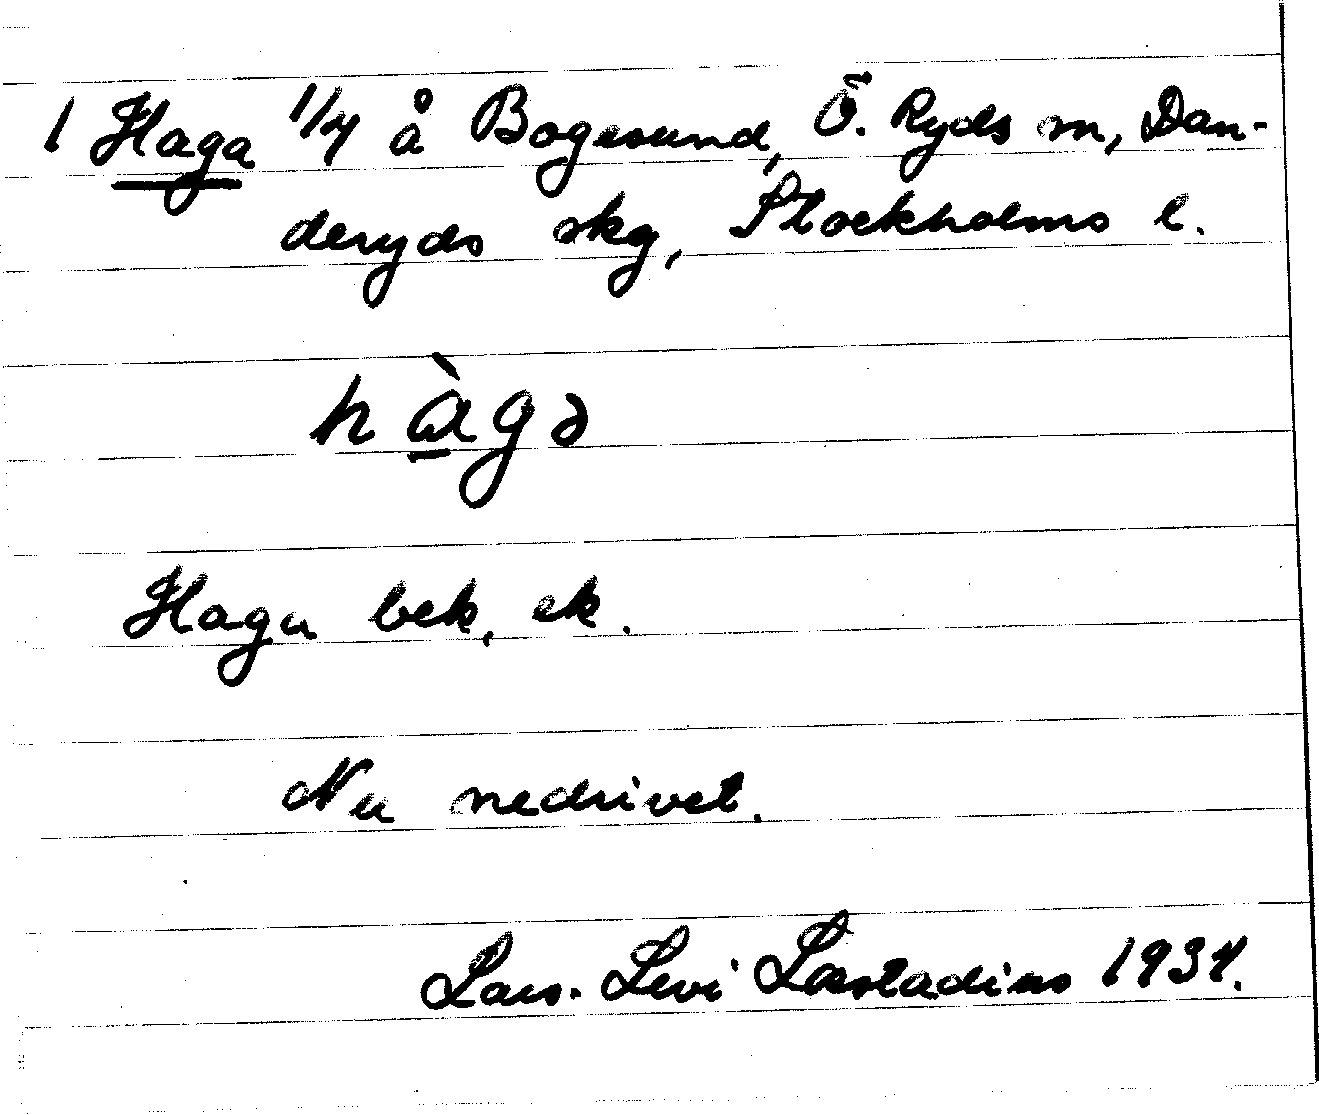 1 Haga 1/4 å Bogesund, Ö. Ryds sn, Dan-
deryds skg, Stockholms l.
hàgə
Haga bek, ek.
Nu nedrivet.
Lars-Levi Læstadius 1934.